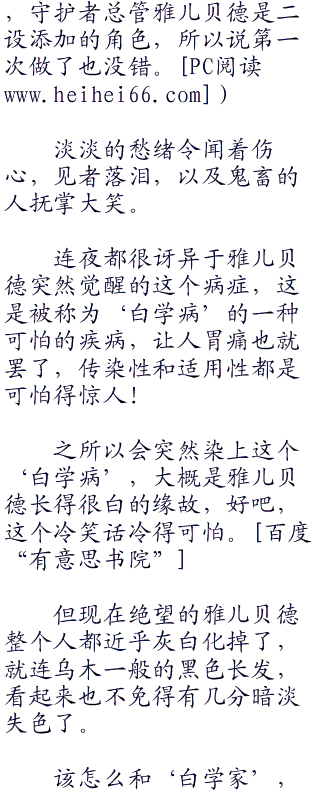 ，守护者总管雅儿贝德是二
设添加的角色，所以说第一
次做了也没错。[PC阅读
www.heihei66.com]）
淡淡的愁绪令闻着伤
心，见者落泪，以及鬼畜的
人抚掌大笑。
连夜都很讶异于雅儿贝
德突然觉醒的这个病症，这
是被称为‘白学病’的一种
可怕的疾病，让人胃痛也就
罢了，传染性和适用性都是
可怕得惊人！
之所以会突然染上这个
‘白学病’，大概是雅儿贝
德长得很白的缘故，好吧，
这个冷笑话冷得可怕。[百度
“有意思书院”]
但现在绝望的雅儿贝德
整个人都近乎灰白化掉了，
就连乌木一般的黑色长发，
看起来也不免得有几分暗淡
失色了。
该怎么和‘白学家’，